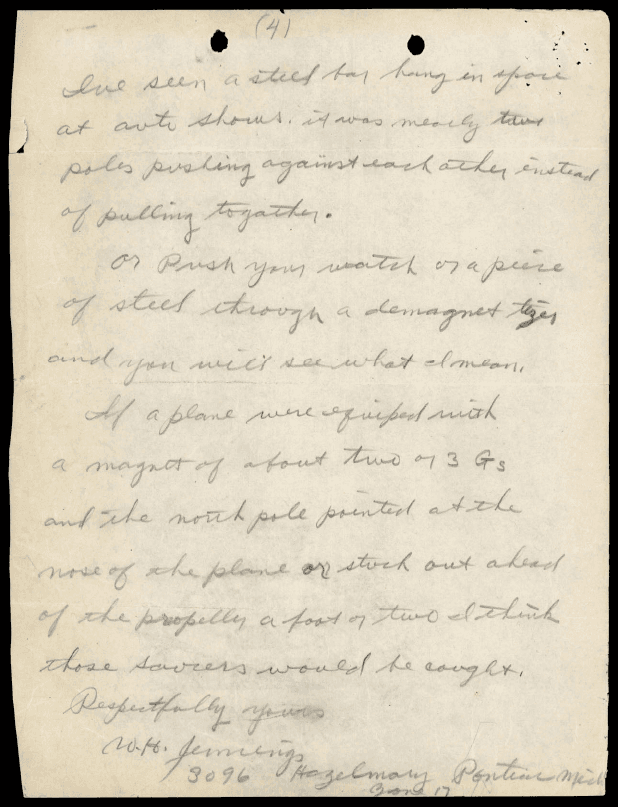 (4)
Ive seen a steel bar hang in space
at auto shows. it was mearly two
poles pushing against each other instead
of pulling togather.
Or Push your watch or a peice
of steel through a demagnet tizer
and you will see what I mean.
If a plane were equiped with
a magnet of about two or 3 Gs
and the north pole pointed at the
nose of the plane or stuck out ahead
of the propelly a foot or two I think
those saucers would be caught.
Respectfully yours
W.H. Jennings
3096 Hazelmary Pontiac Mich
Zone 17